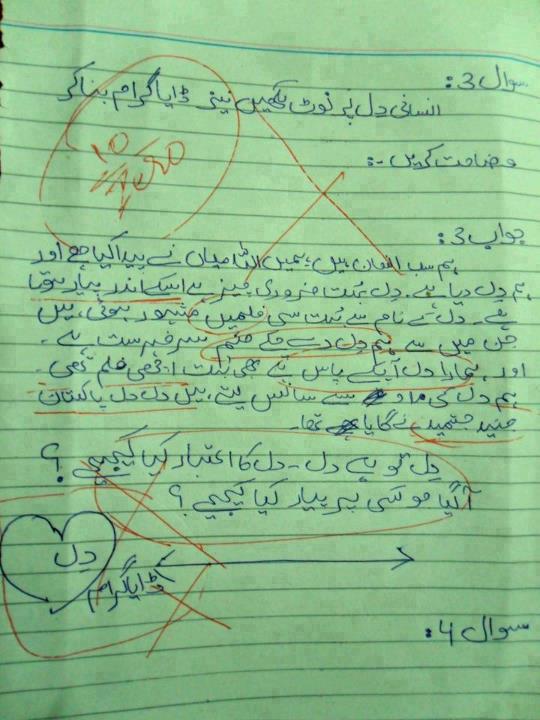 سوال 3:
انسانی دل پر نوٹ لکھیں نیز ڈایاگرام بنا کر
وضاحت کریں -:
10
Zero
جواب 3:
ہم سب انسان ہیں، ہمیں اللہ میاں نے پیدا کیا ہے اور
ہم دل دیا ہے. دل بہت ضروری چیز ہے اسکے اندر پیار ہوتا
ہے۔ دل کے نام سے بہت سی فلمیں مشہور ہوئی ہیں
جن میں سے ہم دل دے چکے صنم سرفہرست ہے۔
اور ہمارا دل آپکے پاس ہے بھی بہت اچھی فلم تھی۔
ہم دل کی مدد سے سانس لیتے ہیں دل دل پاکستان
جنید جمشید نے گایا تھا۔
دل تو ہے دل - دل کا اعتبار کیا کیجیے ؟
آ گیا جو کسی پہ پیار کیا کیجیے ؟
دل
ڈایاگرام
سوال 4: